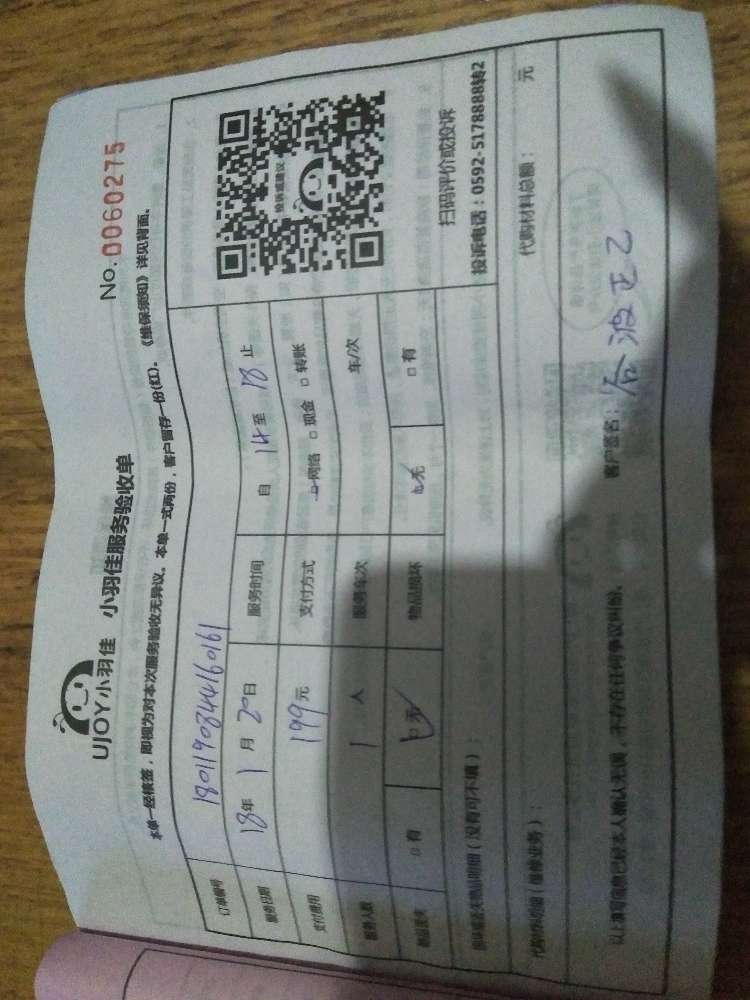 UJOY小羽佳 小羽佳服务验收单
No. 0060275
本单一经核签，即视为对本次服务验收无异议。本单一式两份，客户留存一份(红)。《维保须知》详见背面。
订单编号 1801190344160161
服务日期 18年1月20日 服务时间 自 14 至 18 止
支付费用 199元 支付方式 网络 现金 转账
服务人数 1 人 服务车次 车/次
物品丢失 有 无 物品损坏 无 有
投诉或建议
扫码评价或投诉
投诉电话：0592-5178888转2
损坏或丢失物品明细（没有可不填）：
代购材料明细（维修业务）： 代购材料总额： 元
以上填写信息已经本人确认无误，不存在任何争议纠纷。 客户签名：